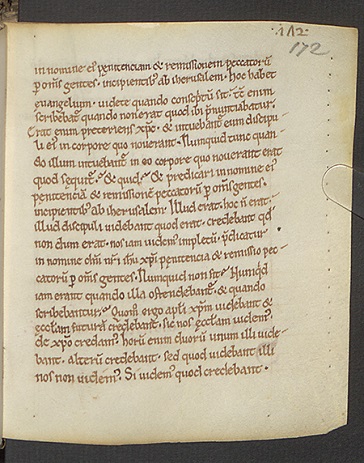 .112.
172
in nomine ei᷒ penitenciam & remissionem peccatorū
p om̄s gentes . incipientib᷒ ab iherusalem . hoc habet
euangelium . uidete quando conscptū sit . tc̄ enim
scribebat᷑ quando non erat quod ibi p̄nuntiabatur .
Erat enim preteriens xp̄c . & intuebant᷑ eum discipu
li ei᷒ in corpore quo nouerant . Nunquid tunc quan
do illum intuebant᷑ in eo corpore quo nouerant erat
quod sequit᷑ . & quid . & predicari in nomine ei᷒
penitenciā & remissionē peccatorū p om̄s gentes .
incipientib᷒ ab iherusalem . Illud erat . hoc n̄ erat .
illud discipuli uidebant quod erat . credebant qd̄
non dum erat . nos iam uidem᷒ impletū . p̄dicatur
in nomine dn̄i nr̄i ihu xp̄i penitencia & remissio pec
catorū p om̄s gentes . Nunquid non sit . Nunqd̄
iam erant quando illa ostendebant᷑ . & quando
scribebantur . Quom̄ ergo apl̄i xp̄m uidebant &
eccl̄am futurā credebant . sic nos eccl̄am uidem᷒
de xp̄o credam᷒ . horū enim duorū unum illi uide
bant . alterū credebant . sed quod uidebant illi
nos non uidem᷒ . Si uidem᷒ quod credebant .